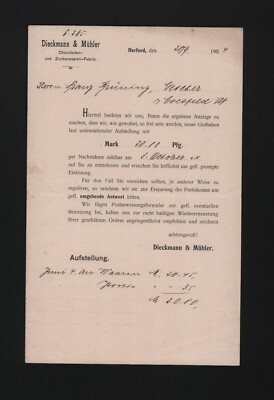 Dieckmann & Mühler
Chocoladen-
und Zuckerwaaren-Fabrik.
Herford, den 20/9. 190
Herrn Franz Grüning, Gescher
b/Coesfeld
Hiermit beehren wir uns, Ihnen die ergebene Anzeige zu
machen, dass wir, wie gewohnt, so frei sein werden, unser Guthaben
laut untenstehender Aufstellung mit
Mark 20.10 Pfg.
per Nachnahme zahlbar am 2. October cr
auf Sie zu entnehmen und ersuchen Sie höflichst um gefl. prompte
Einlösung.
Für den Fall Sie vorziehen sollten, in anderer Weise zu
regulieren, so möchten wir sie zur Ersparung der Portokosten um
gefl. umgehende Antwort bitten.
Wir fügen Postanweisungsformular zur gefl. eventuellen
Benutzung bei, halten uns zur recht baldigen Wiedererneuerung
Ihrer geschätzten Ordres angelegentlichst empfohlen und zeichnen
achtungsvoll!
Dieckmann & Mühler.
Aufstellung.
Juni 4. An Waaren M. 20.45
Porto - 35
M 20.10